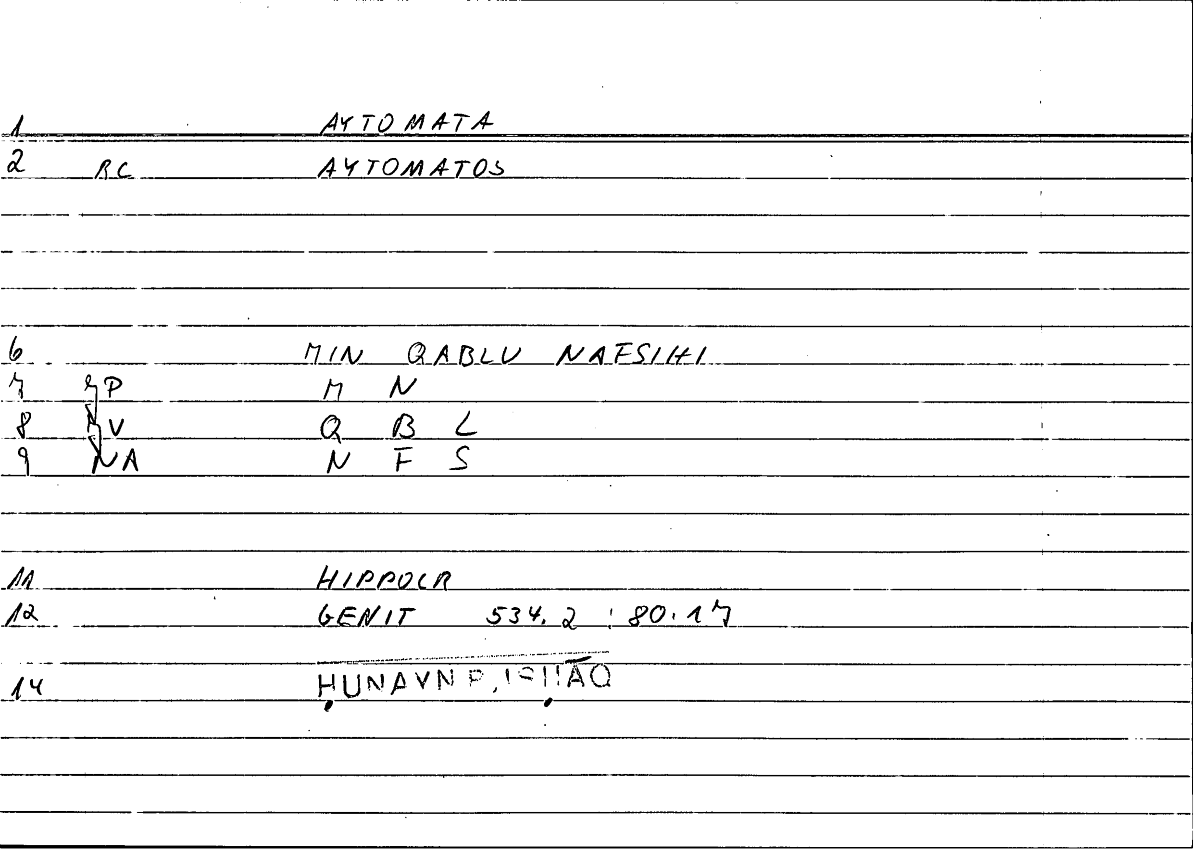 1 AYTOMATA
2 RC AYTOMATOS
6 MIN QABLU NAFSIHI
7 P M N
8 NV Q B L
9 NA N F S
11 HIPPOCR
12 GENIT 534.2 : 80.17
14 ḤUNAYN B. ISḤĀQ